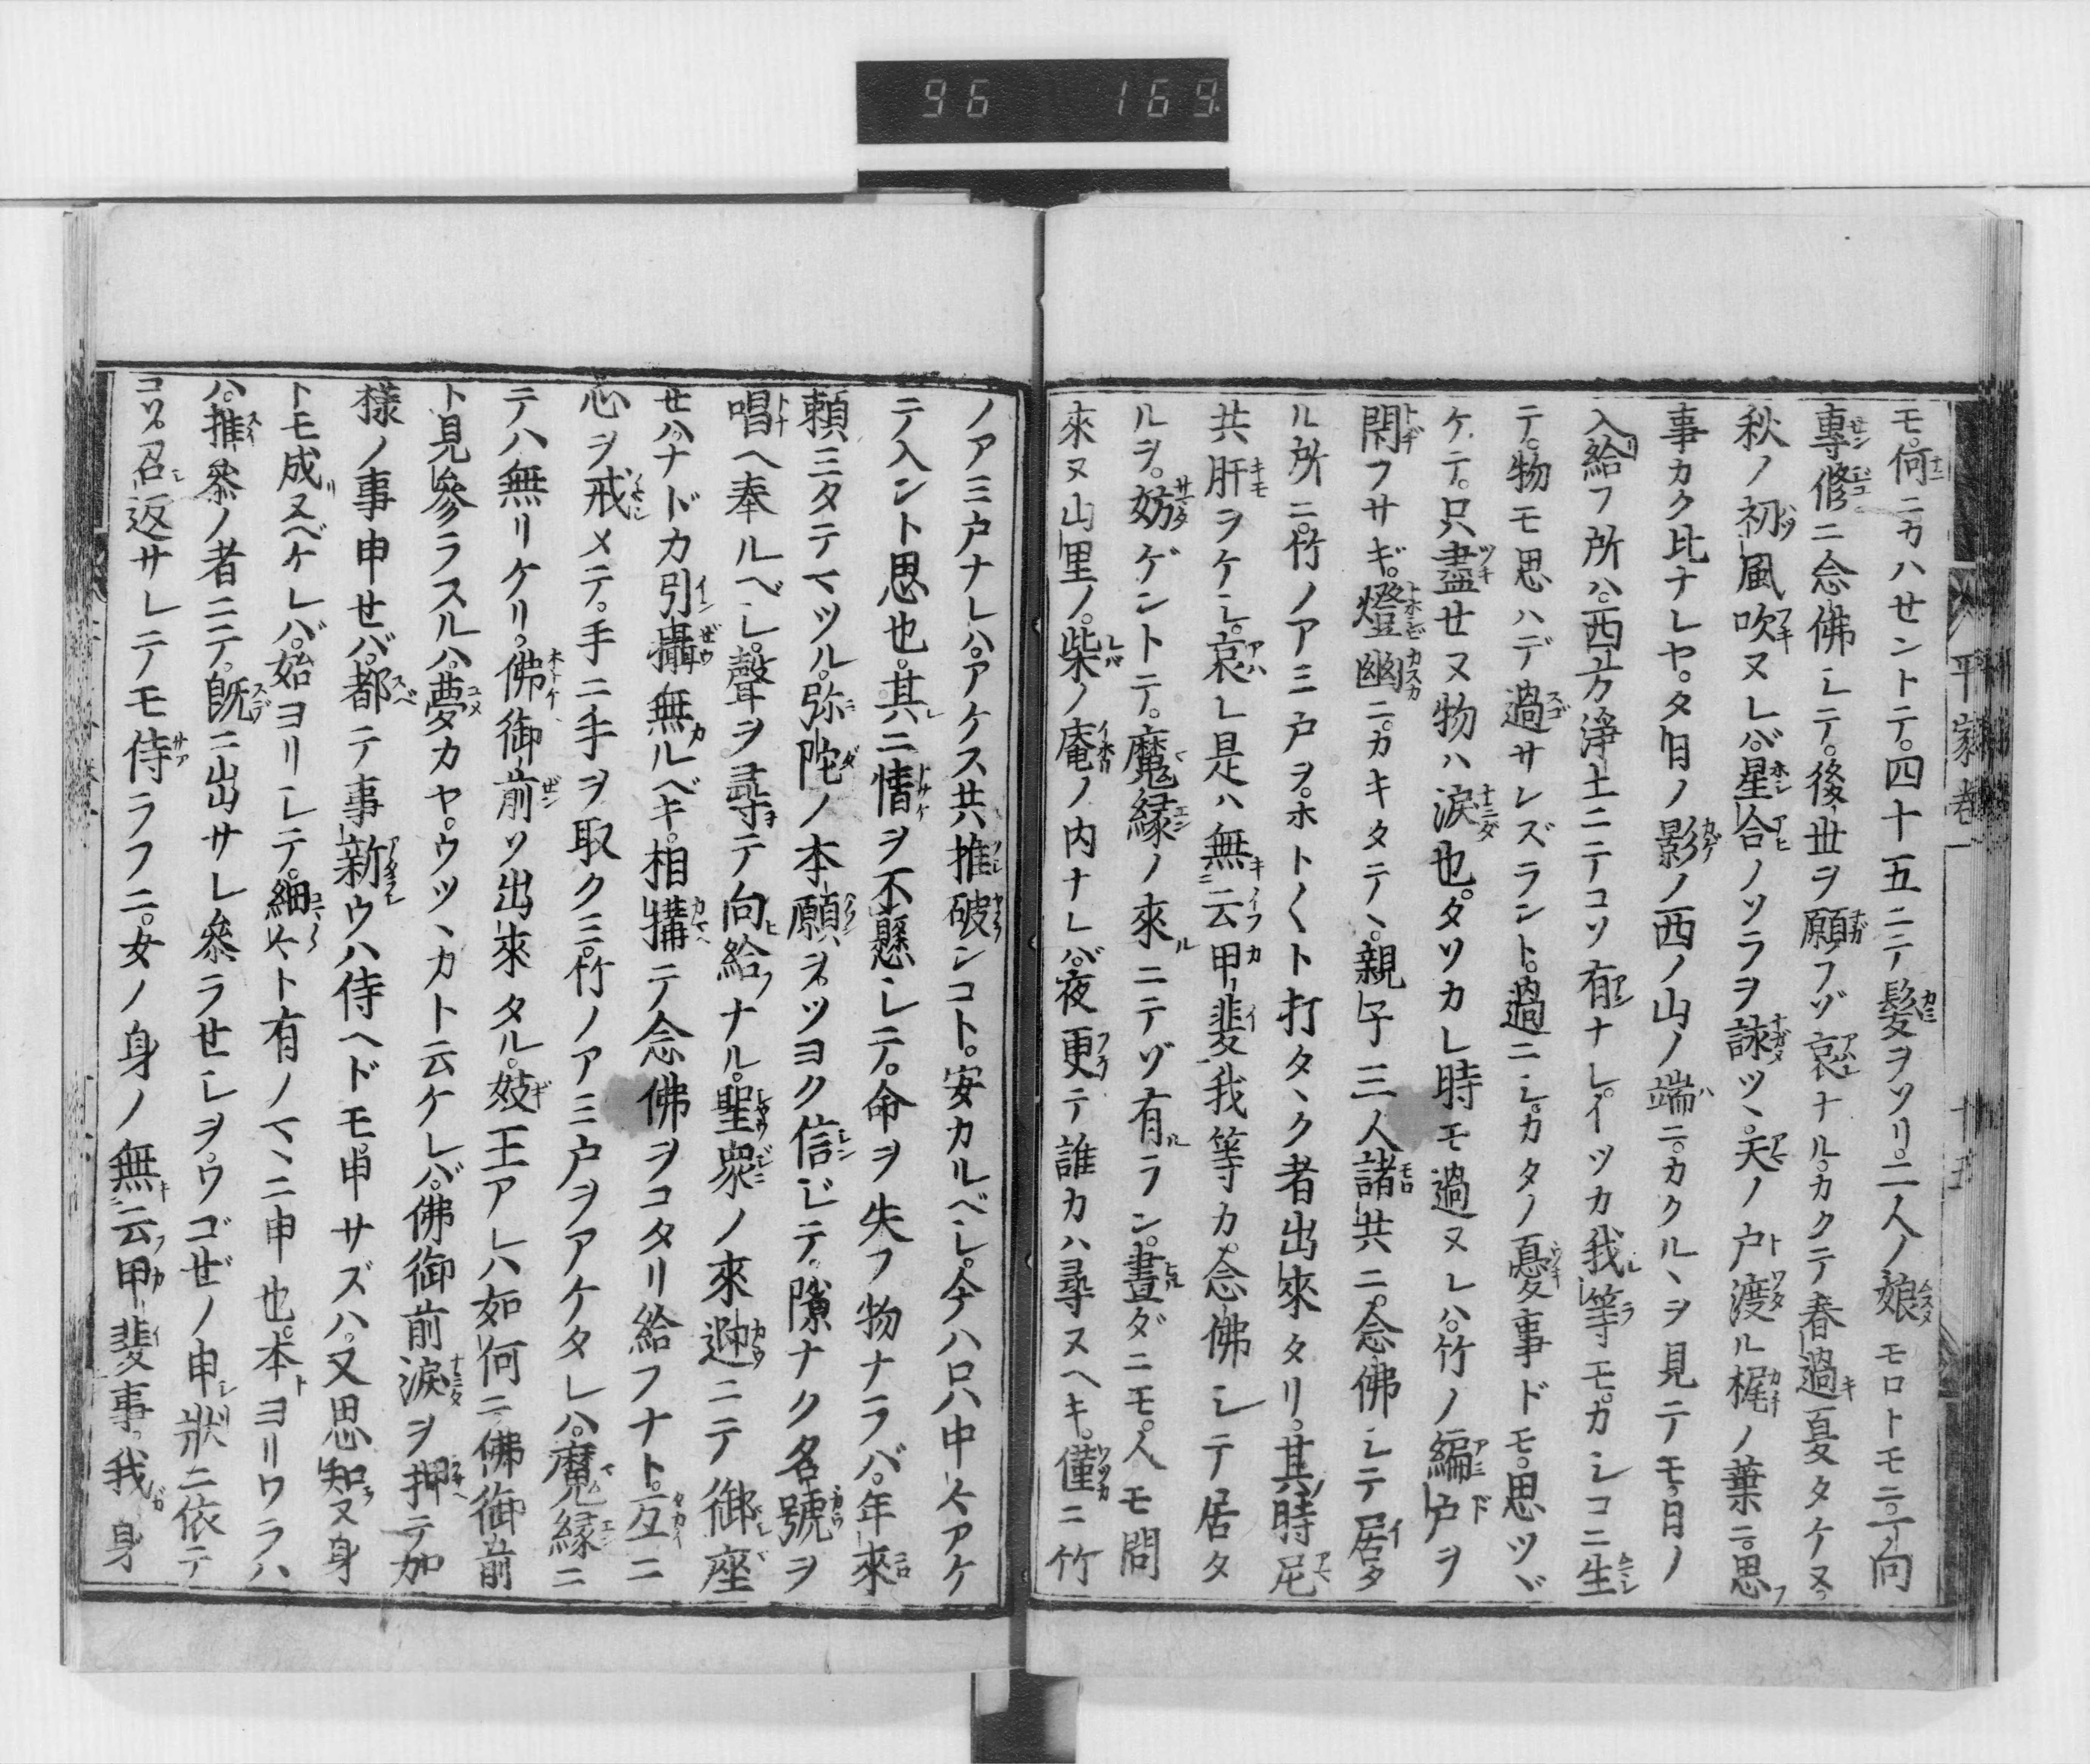 96 169
モ何ニカハせントテ。四十五ニテ髮ヲソリ。二人ノ娘モロトモニ。一向
專修ニ念佛シテ。後世ヲ願フゾ哀ナル。カクテ春過夏タケヌ。
秋ノ初風吹ヌレバ。星合ノソラヲ詠ツヽ。天ノ戸渡ル梶ノ葉ニ。思フ
事カク比ナレヤ。夕日ノ影ノ西ノ山ノ端ニ。カクルヽヲ見テモ。日ノ
入給フ所ハ。西方淨土ニテコソ有ナレ。イツカ我等モ。カシコニ生
テ。物モ思ハデ過サレズラント。過ニシカタノ憂事ドモ。思ツヾ
ケテ。只盡せヌ物ハ涙也。タソカレ時モ過ヌレハ。竹ノ編戸ヲ
閇フサギ。燈幽ニ。カキタテヽ。親子三人諸共ニ。念佛シテ居タ
ル所ニ。竹ノアミ戸ヲ。ホト〱ト打タヽク者出來タリ。其時尼
共肝ヲケシ。哀レ是ハ無云甲斐我等カ。念佛シテ居タ
ルヲ。妨ゲントテ。魔縁ノ來ルニテゾ有ラン。晝ダニモ。人モ問
來ヌ山里ノ。柴ノ庵ノ内ナレバ。夜更テ誰カハ尋ヌヘキ。僅ニ竹
平家卷一 十五
ノアミ戸ナレハ。アケス共推破ンコト。安カルベシ。今ハ只ハ中〻アケ
テ入ント思也。其ニ情ヲ不懸シテ。命ヲ失フ物ナラバ。年來
頼ミタテマツル。弥陀ノ本願ヲ。ツヨク信ジテ。隙ナク名號ヲ
唱ヘ奉ルベシ。聲ヲ尋テ向給フナル。聖衆ノ來迎ニテ御座
せハ。ナドカ引攝無ルベキ。相構テ念佛ヲコタリ給フナト。互ニ
心ヲ戒メテ。手ニ手ヲ取クミ。竹ノアミ戸ヲアケタレハ。魔縁ニ
テハ無リケリ。佛御前ソ出來タル。妓王アレハ如何ニ佛御前
ト見參ラスルハ。夢カヤ。ウツヽカト云ケレバ。佛御前涙ヲ押テ加
樣ノ事申せバ。都テ事新ウハ侍ヘドモ。申サズハ。又思知ヌ身
トモ成ヌベケレバ。始ヨリシテ。細〻ト有ノマヽニ申也。本ヨリワラハ
ハ。推參ノ者ニテ。既ニ出サレ參ラせシヲ。ワゴぜノ申狀ニ依テ
コソ。召返サレテモ侍ラフニ。女ノ身ノ無云甲斐事。我身